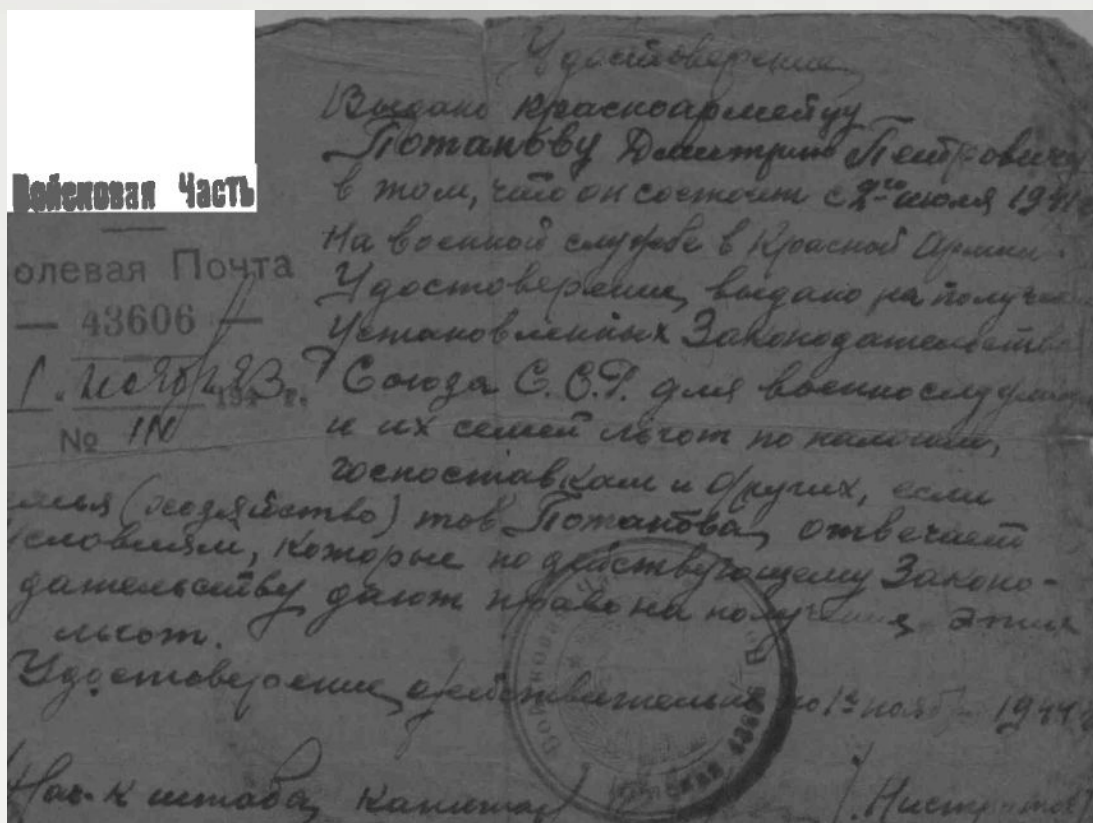 Удостоверение
Выдано красноармейцу
Потапову Дмитрию Петровичу
в том, что он состоит с 2го июля 1941
на военной службе в Красной Армии.
Удостоверение выдано на получен
установленных Законодательство
Союза С.С.Р. для военнослужащ
и их семей льгот по налогам,
госпоставкам и других, если
емья (хозяйство) тов Потапова отвечает
условиям, которые по действующему Законо-
дательству дают право на получение этих
льгот.
Удостоверение действительно по 1е нояб 1944 г
Нач-к штаба, капитан
Войсковая Часть
олевая Почта
— 43606 —
1. 1943 г.
№